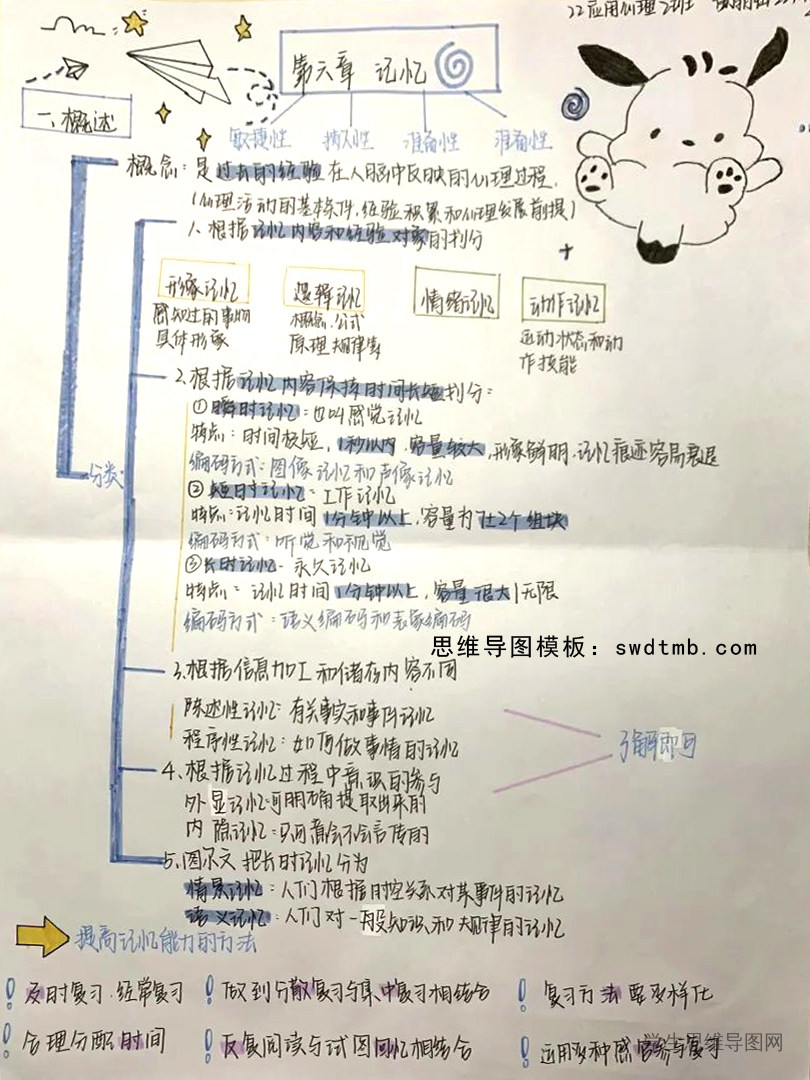 22应用心理2班
第六章 记忆
一、概述
敏捷性 持久性 准备性 准备性
概念：是过去的经验在人脑中反映的心理过程.
(心理活动的基本条件,经验积累和心理发展前提)
1、根据记忆内容和经验对象的划分
形象记忆 逻辑记忆 情绪记忆 动作记忆
感知过的事物 概念.公式 运动状态和动
具体形象 原理规律等 作技能
2.根据记忆内容保持时间长短划分：
①瞬时记忆：也叫感觉记忆
特点：时间极短，1秒以内.容量较大,形象鲜明.记忆痕迹容易衰退
编码方式:图像记忆和声像记忆
分类
②短时记忆=工作记忆
特点:记忆时间1分钟以上,容量为7±2个组块
编码方式:听觉和视觉
③长时记忆-永久记忆
特点：记忆时间1分钟以上,容量很大|无限
编码方式：语义编码和表象编码
思维导图模板：swdtmb.com
3.根据信息加工和储存内容不同
陈述性记忆:有关事实和事件记忆
程序性记忆：如何做事情的记忆
了解即可
4、根据记忆过程中意识的参与
外显记忆:可明确提取出来的
内隐记忆:只可意会不会言传的
5.图尔文把长时记忆分为
情景记忆:人们根据时空关系对某事件的记忆
语义记忆:人们对一般知识和规律的记忆
提高记忆能力的方法
!及时复习.经常复习 !做到分散复习与集中复习相结合 !复习方法要多样化
!合理分配时间 !反复阅读与试图回忆相结合 !运用多种感官参与复习
学生思维导图网